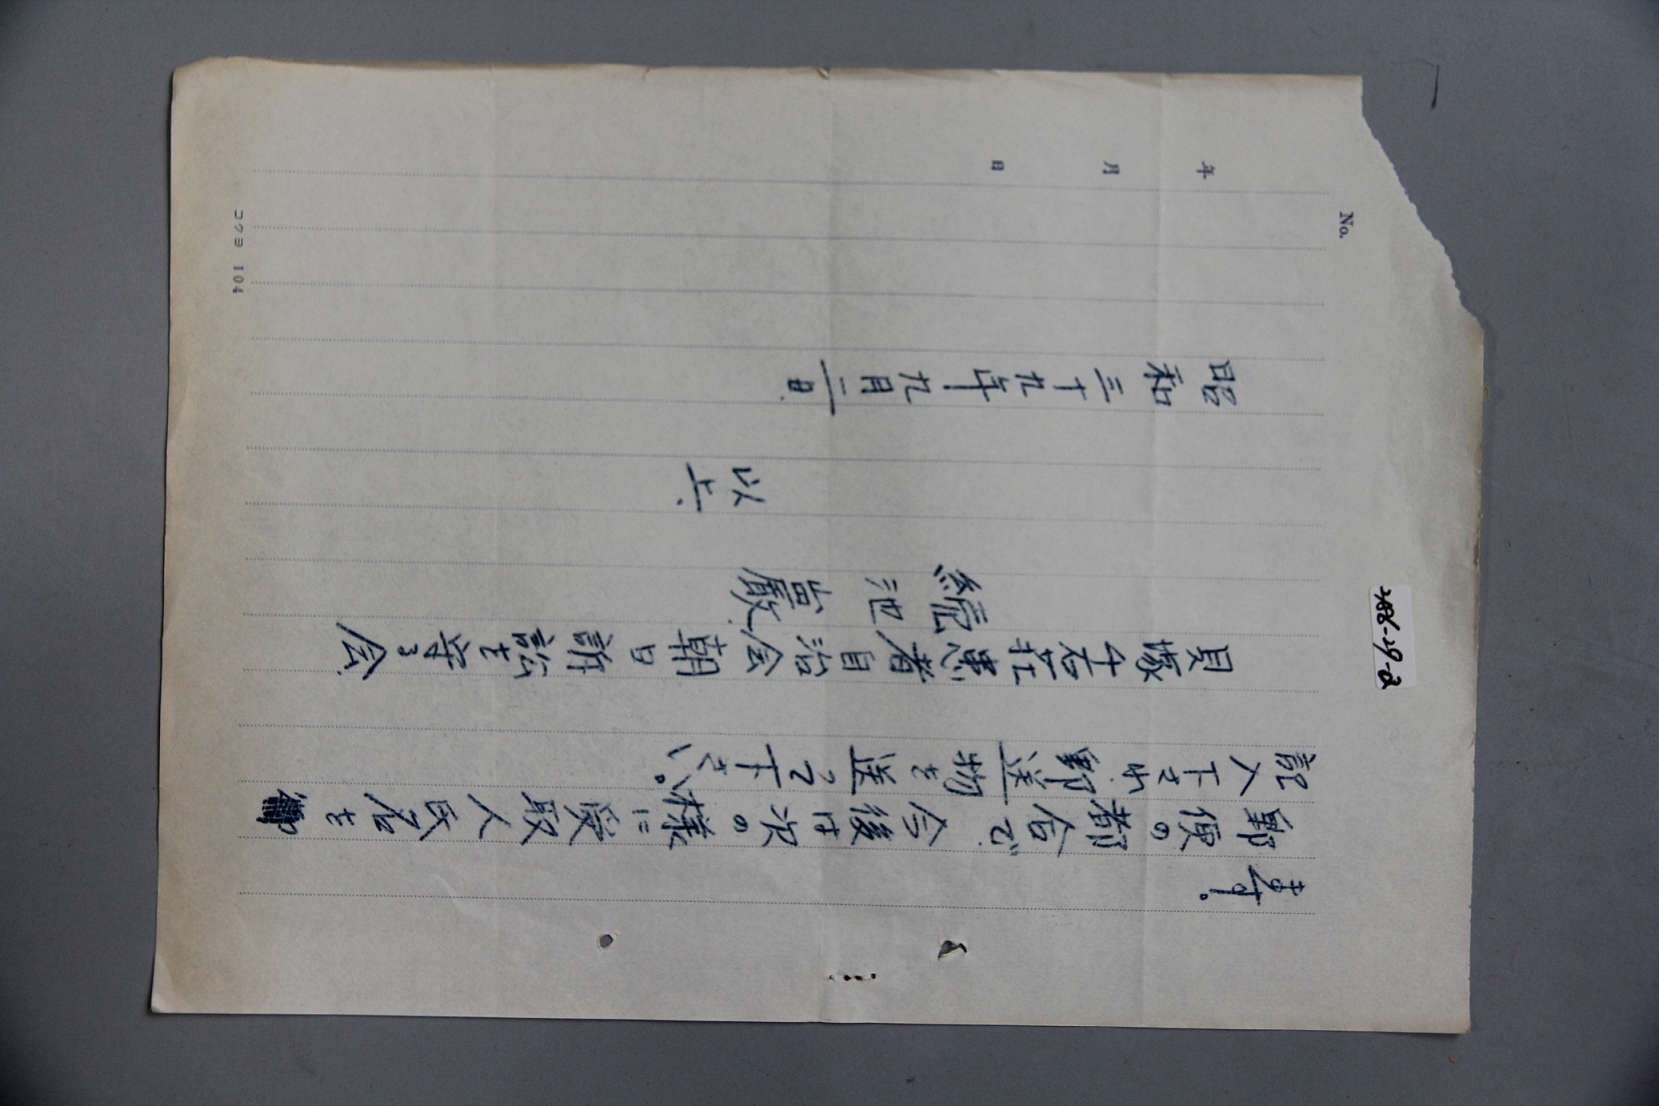 ます。
郵便の都合で、今後は次の様に受取人氏名を
記入下され、郵送物を送って下さい。
貝塚千石荘患者自治会朝日訴訟を守る会
池 巌
以上、
昭和三十九年九月二日
年 月 日
No.
コクヨ 104